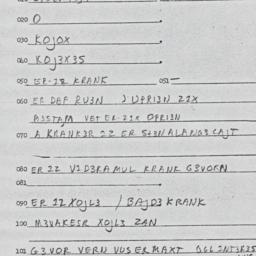 020 O
030 KOJOX
040 KOJ3X35
050 ER-12 KRANK 051—
060 ER DEF RU3N J UPRI3N 21X
A3STAM VET ER 21X OPRI3N
070 A KRANK3R 22 ER S+3N ALANG3 CAJT
080 ER 22 V1D3RAMUL KRANK G3VORN
081
090 ER 12 XOJL3 / BAJD3 KRANK
100 M3VAKE3R XOJL3 ZAN
101 G3VOR VERN VUS ER MAXT